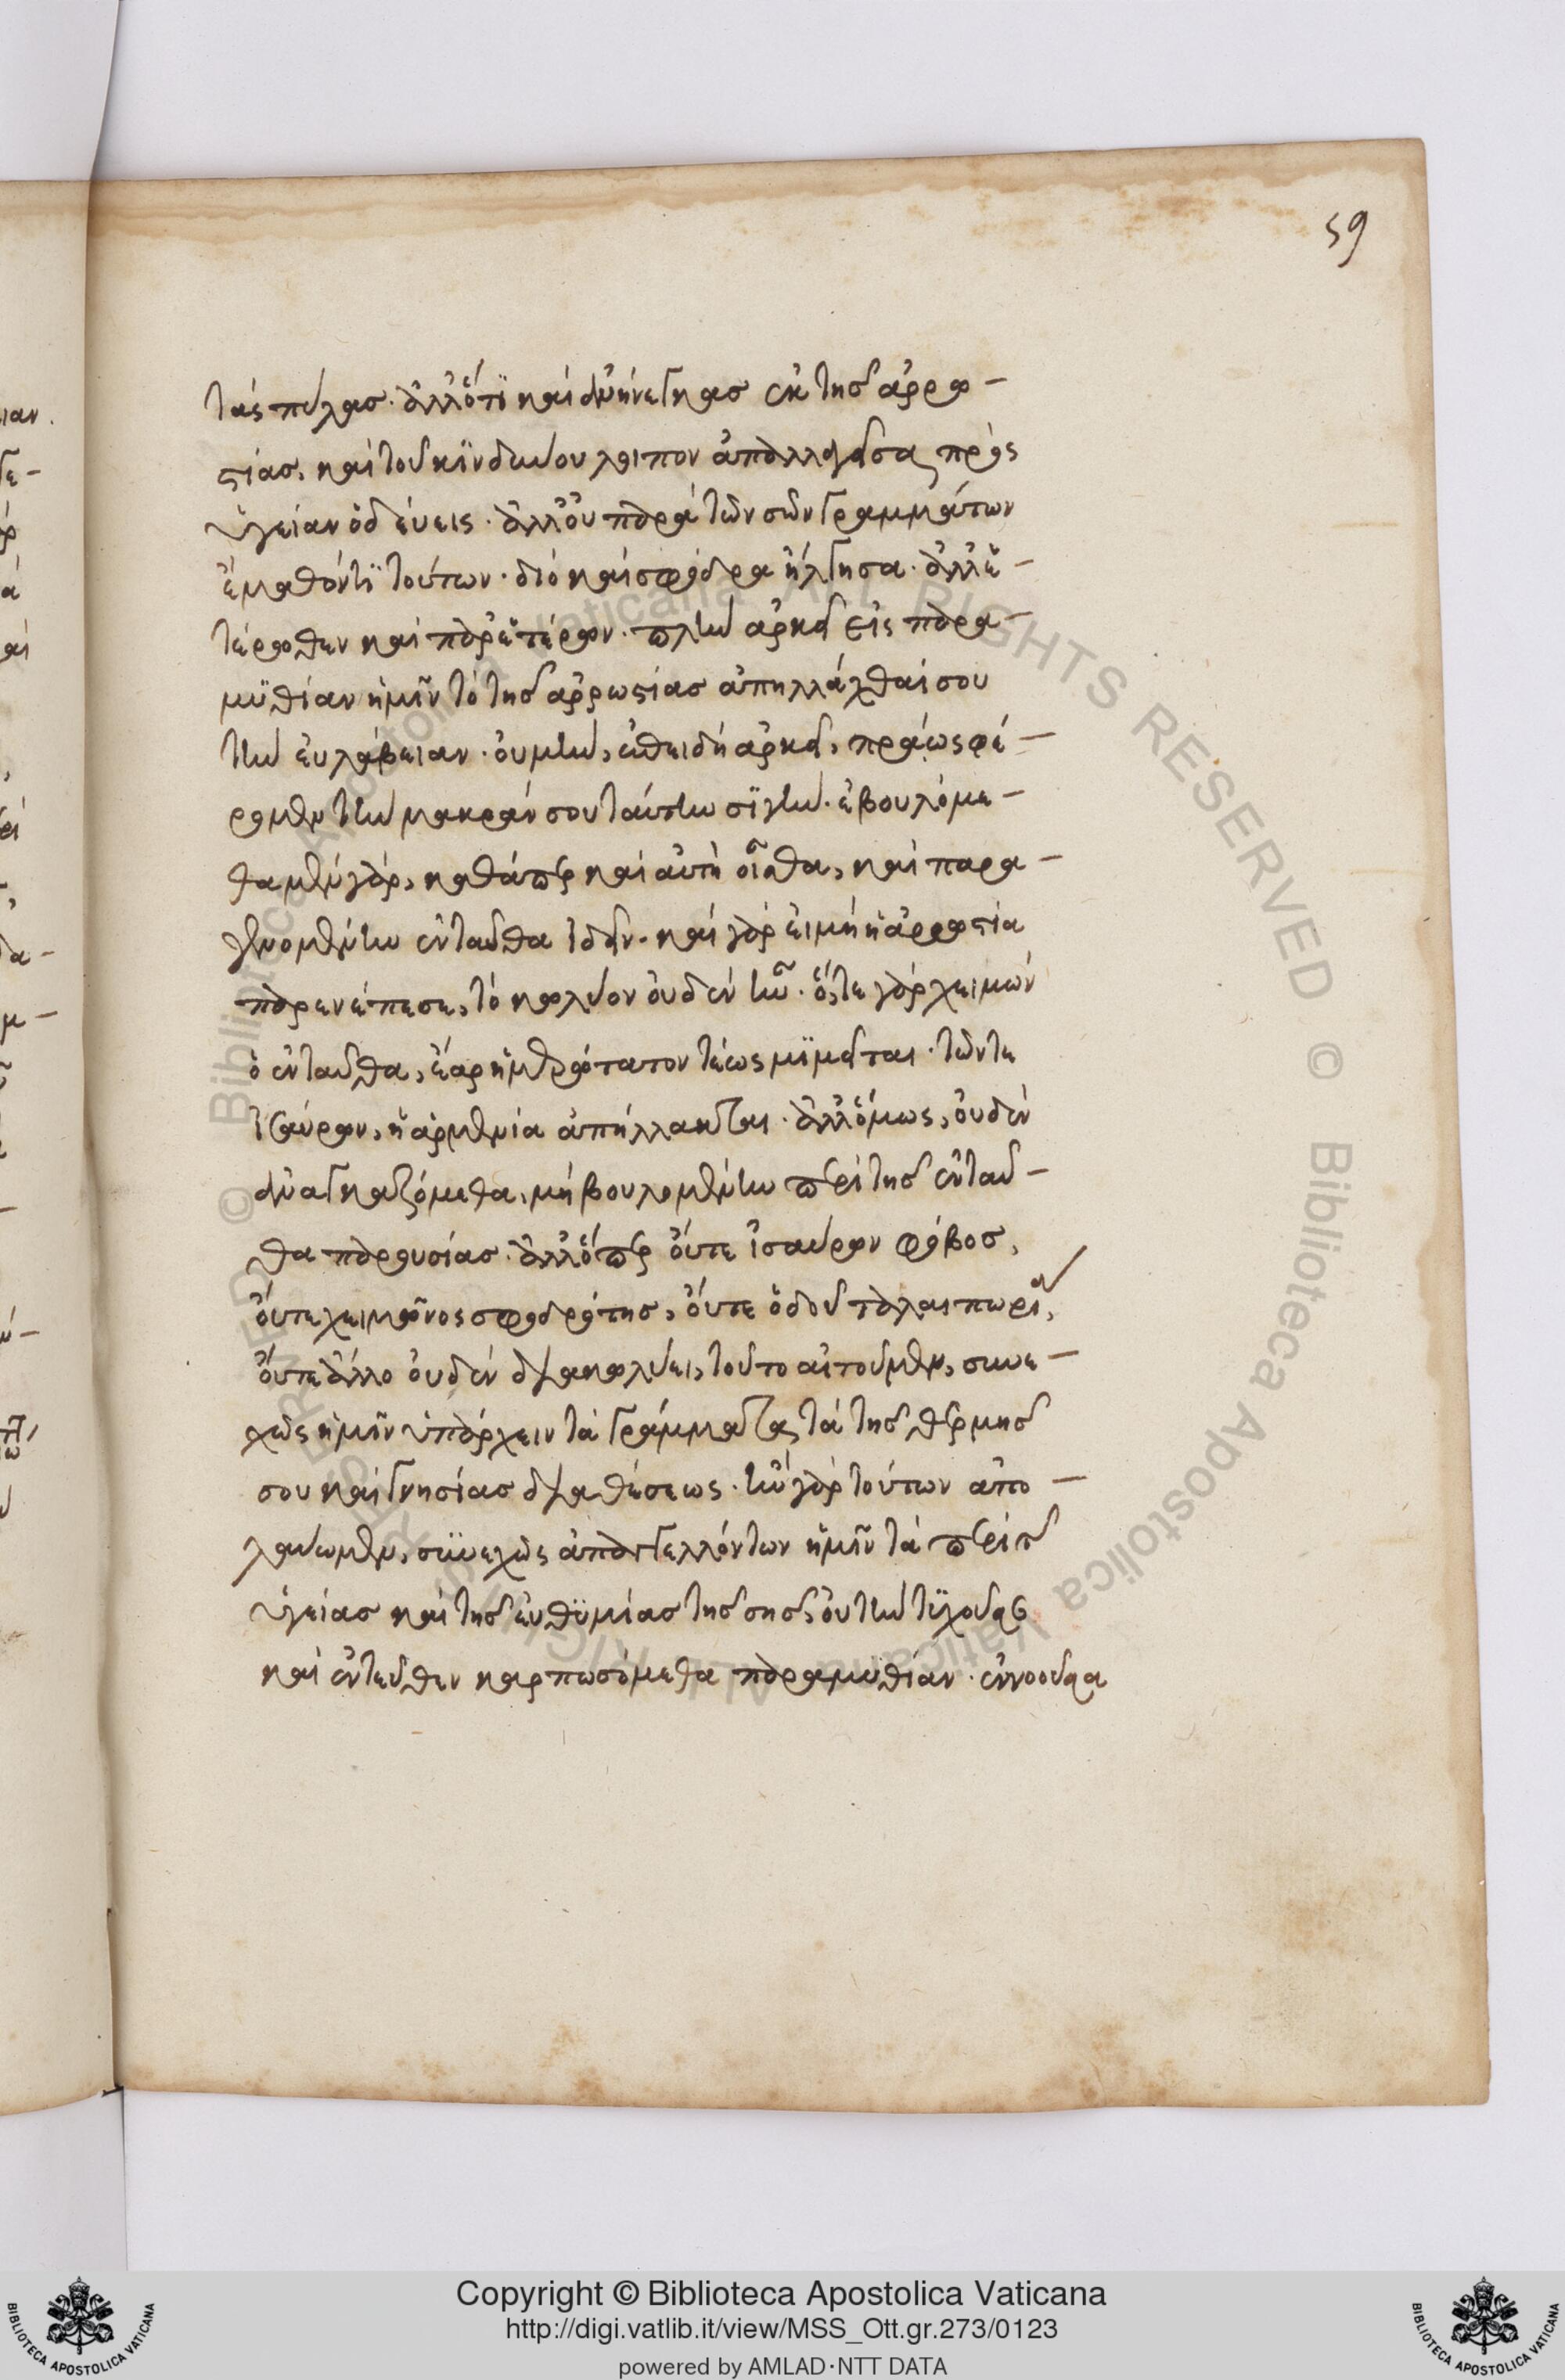 59
τὰς πύλας. ἀλλ' ὅτι καὶ ἀνήνεγκας ἐκ τῆς ἀρρω-
στίας, καὶ τοῦ κινδύνου λοιπὸν ἀπαλλαγεῖσα, πρὸς
ὑγείαν ὁδεύεις. ἀλλ' οὐ παρὰ τῶν σῶν γραμμάτων
ἐμάθόν τι τούτων. διὸ καὶ σφόδρα ἤλγησα. ἀλλ' ἑ-
τέρωθεν καὶ παρ' ἑτέρων. πλὴν ἀρκεῖ εἰς παρα-
μυθίαν ἡμῖν τὸ τῆς ἀρρωστίας ἀπηλλάχθαι σου
τὴν εὐλάβειαν. οὐ μὴν, ἐπειδὴ ἀρκεῖ, πράως φέ-
ρομεν τὴν μακράν σου ταύτην σιγήν. ἐβουλόμε-
θα μὲν γὰρ, καθάπερ καὶ αὐτὴ οἶσθα, καὶ παρα-
γενομένην ἐνταῦθα ἰδεῖν. καὶ γὰρ εἰ μὴ ἡ ἀρρωστία
παρενέπεσε, τὸ κωλύον οὐδὲν ἦν. ὅ, τε γὰρ χειμὼν
ὁ ἐνταῦθα, ἔαρ ἡμερώτατον τέως μιμεῖται. τῶν τε
ἰσαύρων, ἡ ἀρμενία ἀπήλλακται. ἀλλ' ὅμως, οὐδὲν
ἀναγκαζόμεθα, μὴ βουλομένην περὶ τῆς ἐνταῦ-
θα παρουσίας. ἀλλ' ὅπερ οὔτε ἰσαύρων φόβος,
οὔτε χειμῶνος σφοδρότης, οὔτε ὁδοῦ ταλαιπωρία,
οὔτε ἄλλο οὐδὲν διακωλύει, τοῦτο αἰτοῦμεν, συνε-
χῶς ἡμῖν ὑπάρχειν τὰ γράμματα, τὰ τῆς θερμῆς
σου καὶ γνησίας διαθέσεως. ἢν γὰρ τούτων ἀπο-
λαύωμεν, συνεχῶς ἀπαγγελλόντων ἡμῖν τὰ περὶ τῆς
ὑγείας καὶ τῆς εὐθυμίας τῆς σῆς, οὐ τὴν τυχοῦσαν
καὶ ἐντεῦθεν καρπωσόμεθα παραμυθίαν. ἐννοοῦσα
Copyright © Biblioteca Apostolica Vaticana
http://digi.vatlib.it/view/MSS_Ott.gr.273/0123
powered by AMLAD·NTT DATA